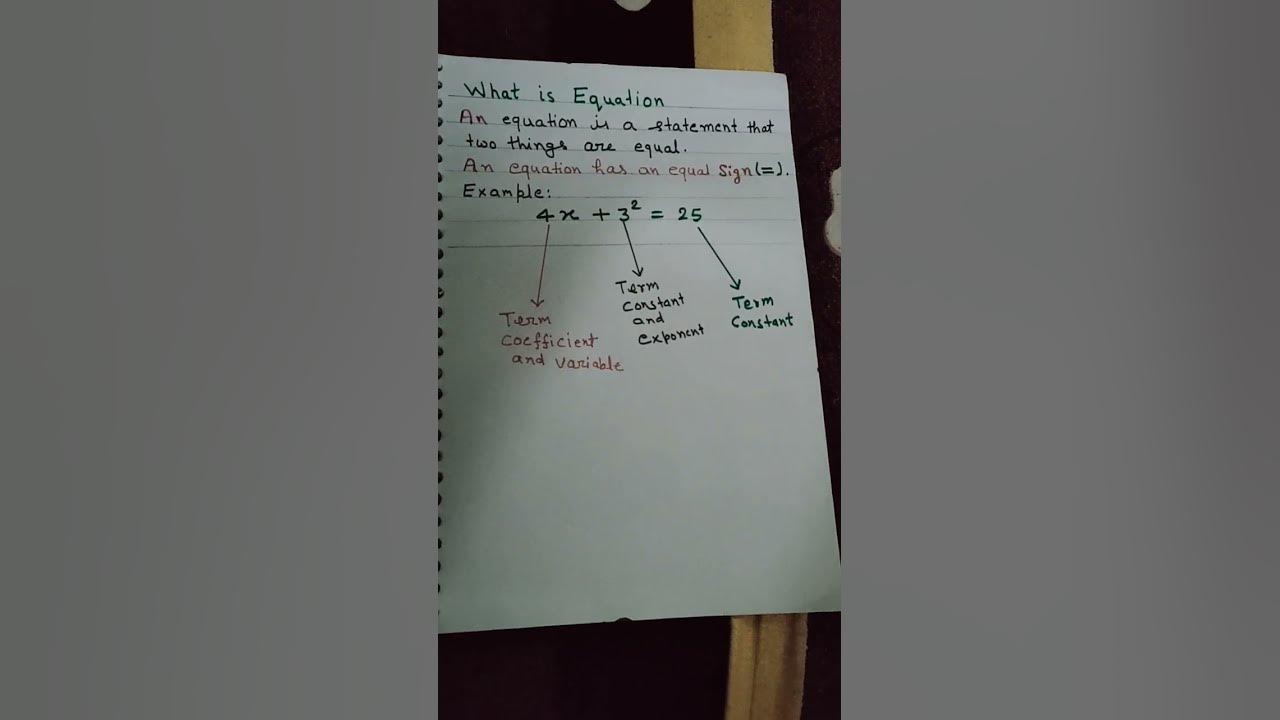 What is Equation
An equation is a statement that
two things are equal.
An equation has an equal Sign(=).
Example:
4x + 3² = 25
Term
Constant
and
exponent
Term
Constant
Term
Coefficient
and variable